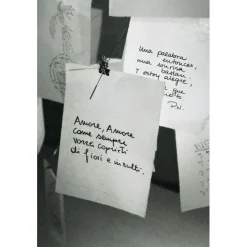 Una palabra
entonces,
una sonrisa
bastan
y estoy alegre,
que
P.N.
Amore, Amore
come sempre
vorrei coprirti
di fiori e insulti.